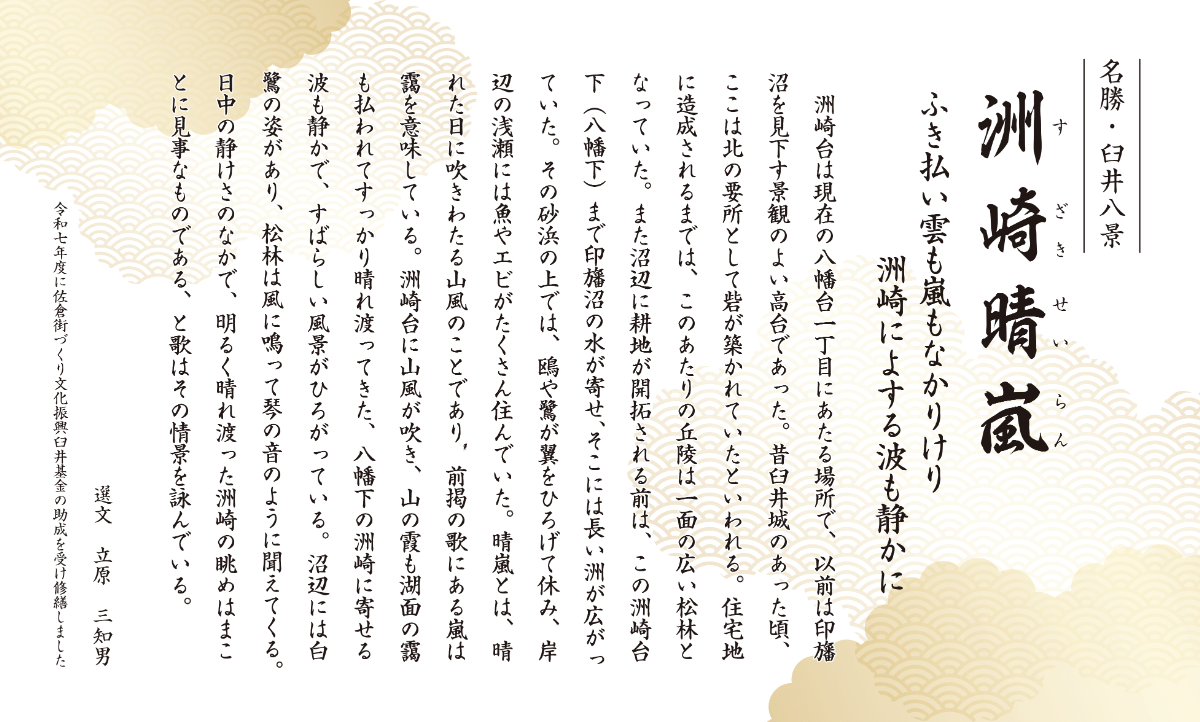 名勝・臼井八景
洲崎晴嵐
すざきせいらん
ふき払い雲も嵐もなかりけり
洲崎によする波も静かに
洲崎台は現在の八幡台一丁目にあたる場所で、以前は印旛
沼を見下す景観のよい高台であった。昔臼井城のあった頃、
ここは北の要所として砦が築かれていたといわれる。住宅地
に造成されるまでは、このあたりの丘陵は一面の広い松林と
なっていた。また沼辺に耕地が開拓される前は、この洲崎台
下（八幡下）まで印旛沼の水が寄せ、そこには長い洲が広がっ
ていた。その砂浜の上では、鴎や鷺が翼をひろげて休み、岸
辺の浅瀬には魚やエビがたくさん住んでいた。晴嵐とは、晴
れた日に吹きわたる山風のことであり、前掲の歌にある嵐は
靄を意味している。洲崎台に山風が吹き、山の霞も湖面の靄
も払われてすっかり晴れ渡ってきた、八幡下の洲崎に寄せる
波も静かで、すばらしい風景がひろがっている。沼辺には白
鷺の姿があり、松林は風に鳴って琴の音のように聞えてくる。
日中の静けさのなかで、明るく晴れ渡った洲崎の眺めはまこ
とに見事なものである、と歌はその情景を詠んでいる。
選文　立原　三知男
令和七年度に佐倉街づくり文化振興臼井基金の助成を受け修繕しました